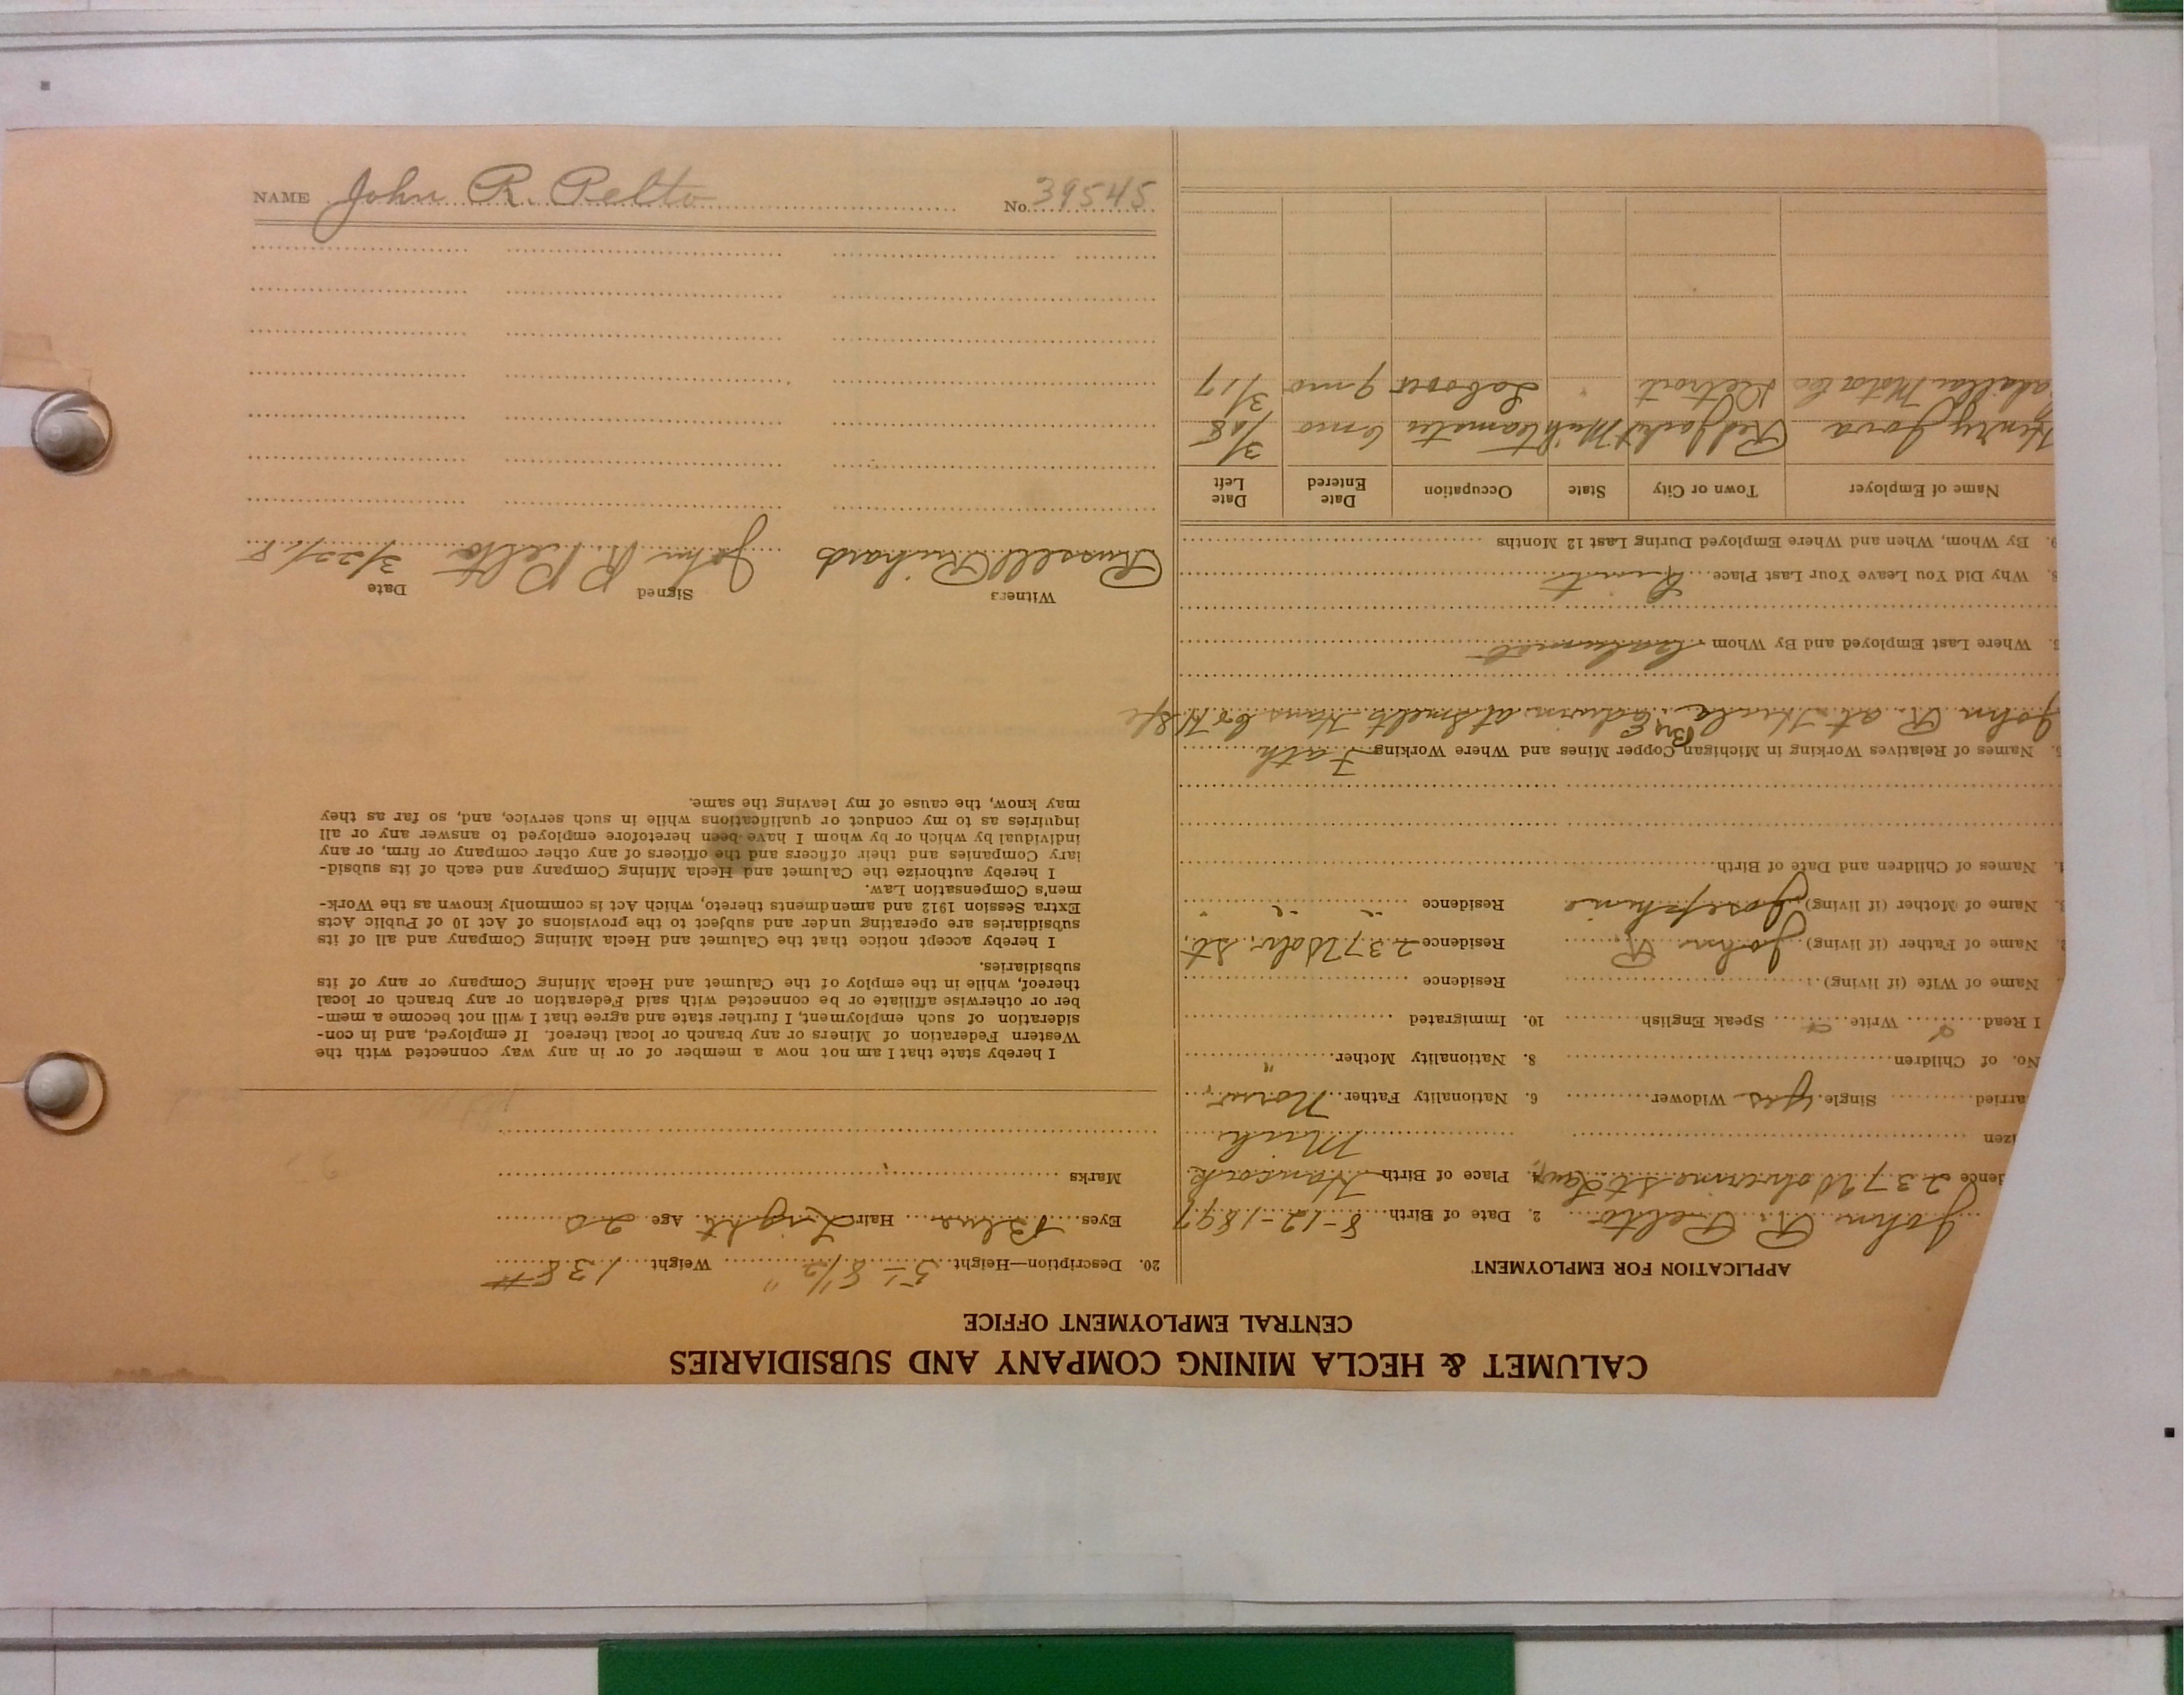 NAME John R. Pelto No. 39545
CALUMET & HECLA MINING COMPANY AND SUBSIDIARIES
CENTRAL EMPLOYMENT OFFICE
APPLICATION FOR EMPLOYMENT
John R. Pelto 2. Date of Birth 8-12-1897
dence 237 Wolverine St. 4. Place of Birth Hancock
izen Mich
arried Single yes Widower 6. Nationality Father
No. of Children 8. Nationality Mother "
I Read Write Speak English 10. Immigrated
Name of Wife (if living) Residence
Name of Father (if living) John R Residence 237 Wolv. St.
Name of Mother (if living) Josephine Residence " " "
Names of Children and Date of Birth
Names of Relatives Working in Michigan Copper Mines and Where Working Fath
John R. at Hecla Bro Edwin at Smelt Hans
Where Last Employed and By Whom Calumet
Why Did You Leave Your Last Place
9. By Whom, When and Where Employed During Last 12 Months
Name of Employer Town or City State Occupation Date Entered Date Left
Henry Red Jacket Mich teamster 6 mo 3/18
adillac Motor Co Detroit " Laborer 9 mo 3/17
20. Description—Height 5' 8 1/2" Weight 138#
Eyes Blue Hair Light Age 20
Marks
I hereby state that I am not now a member of or in any way connected with the
Western Federation of Miners or any branch or local thereof. If employed, and in con-
sideration of such employment, I further state and agree that I will not become a mem-
ber or otherwise affiliate or be connected with said Federation or any branch or local
thereof, while in the employ of the Calumet and Hecla Mining Company or any of its
subsidiaries.
I hereby accept notice that the Calumet and Hecla Mining Company and all of its
subsidiaries are operating under and subject to the provisions of Act 10 of Public Acts
Extra Session 1912 and amendments thereto, which Act is commonly known as the Work-
men's Compensation Law.
I hereby authorize the Calumet and Hecla Mining Company and each of its subsid-
iary Companies and their officers and the officers of any other company or firm, or any
individual by which or by whom I have been heretofore employed to answer any or all
inquiries as to my conduct or qualifications while in such service, and, so far as they
may know, the cause of my leaving the same.
Witness Signed Date
Russell Richards John R Pelto 3/22/18